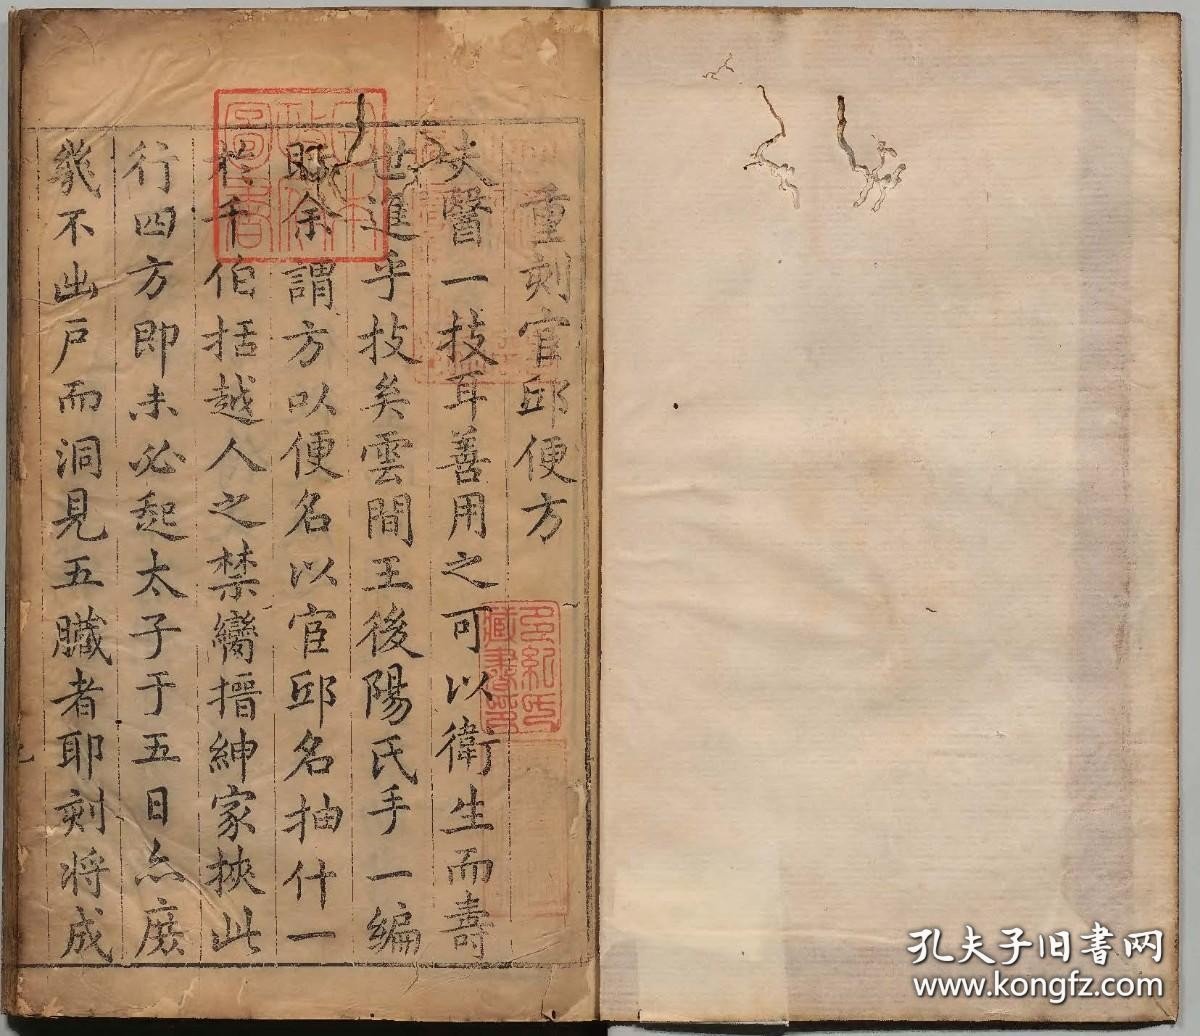 重刻宦邱便方
夫醫一技耳善用之可以衛生而壽
世進乎技矣雲間王後陽氏手一編
眎余謂方以便名以宦邱名抽什一
於千伯括越人之禁臠搢紳家挾此
行四方即未必起太子于五日亦庶
幾不出戸而洞見五臟者耶刻将成
圖書
藏書
孔夫子旧书网
www.kongfz.com